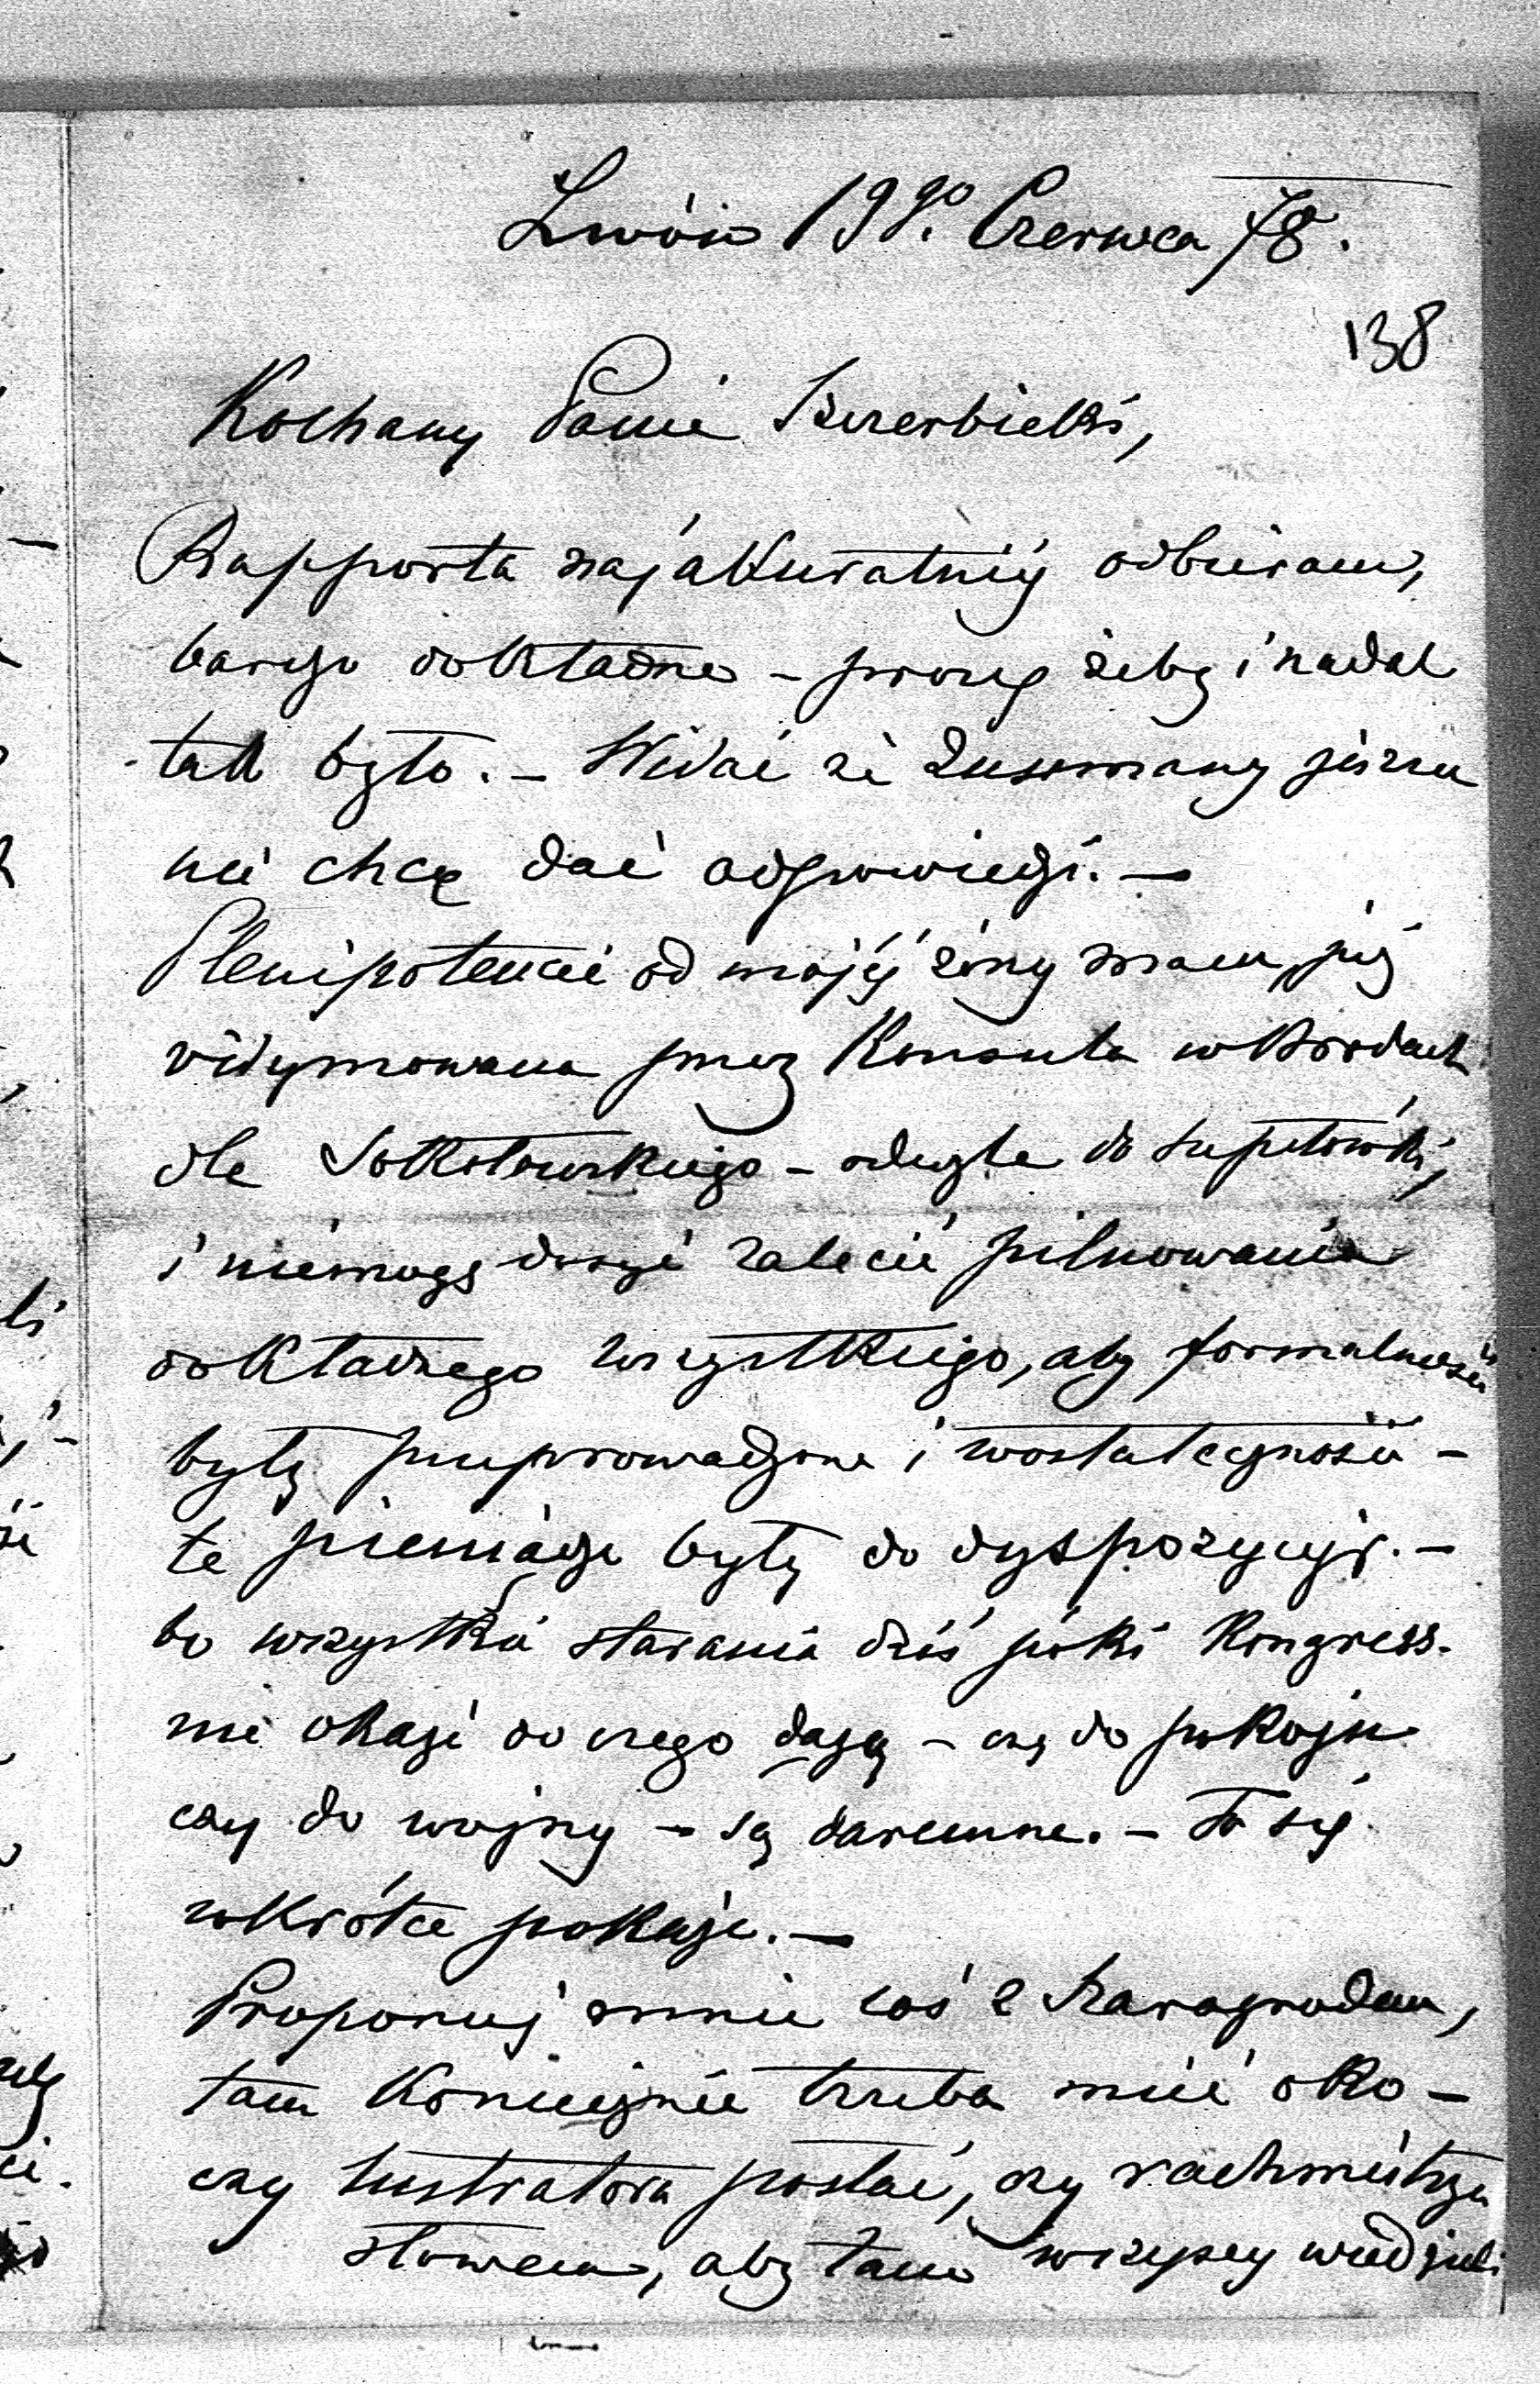 Lwów 19go. Czerwca 78.
138
Kochany Panie Szczerbicki,
Rapporta najakuratniej odbieram,
barzo dokładne - proszę żeby i nadal
tak było. - Widać że Zussmany jeszcze
nie chcą dać odpowiedzi. -
Plenipotencie od mojéj żony mam, już
vidymowana przez Konsula w Brodach
dla Sokołowskiego - odeszła do
i niemogę dosyć zalecić pilnowania
dokładnego wszystkiego, aby formalności
były przeprowadzone i wostateczności -
te pieniądze były do dyspozycyi. -
bo wszystkie starania dziś póki Kongress.
nie okaże do czego dążą - czy do pokoju
czy do wojny - są daremne. - To się
wkrótce pokaże. -
Proponuj mnie coś z Szarogrodem,
tam koniecznie trzeba mieć oko -
czy lustratora posłać, czy rachmistrza
słowem, aby tam wszyscy wiedzieli